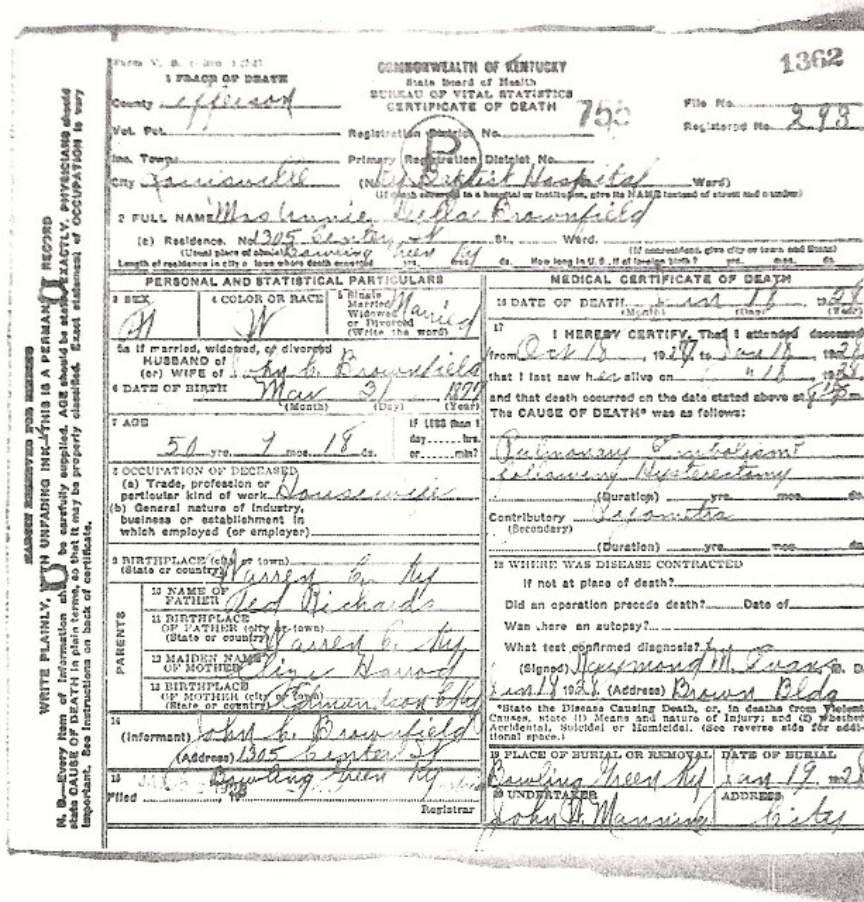 1362
COMMONWEALTH OF KENTUCKY
State Board of Health
BUREAU OF VITAL STATISTICS
CERTIFICATE OF DEATH
755
File No.
Registered No. 293
1 PLACE OF DEATH
County Jefferson
Vot. Pct.
Registration District No.
Inc. Town
Primary Registration District No.
P
City Louisville (No. Ky Baptist Hospital Ward)
(If death occurred in a hospital or institution, give its NAME instead of street and number)
2 FULL NAME Mrs Annie Brownfield
(a) Residence. No 1305 Center St St., Ward.
(Usual place of abode) Bowling Green Ky (If nonresident, give city or town and State)
Length of residence in city or town where death occurred yrs. mos. ds. How long in U. S., if of foreign birth? yrs. mos. ds.
PERSONAL AND STATISTICAL PARTICULARS
3 SEX
4 COLOR OR RACE W
5 Single Married Widowed or Divorced (Write the word) Married
5a If married, widowed, or divorced
HUSBAND of
(or) WIFE of John C. Brownfield
6 DATE OF BIRTH May 31 1877
(Month) (Day) (Year)
7 AGE
50 yrs. 7 mos. 18 ds.
IF LESS than 1
day hrs.
or min?
8 OCCUPATION OF DECEASED
(a) Trade, profession or
particular kind of work Housewife
(b) General nature of Industry,
business or establishment in
which employed (or employer)
9 BIRTHPLACE (city or town)
(State or country) Warren Co. Ky
PARENTS
10 NAME OF
FATHER Richards
11 BIRTHPLACE
OF FATHER (city or town)
(State or country) Warren C. Ky
12 MAIDEN NAME
OF MOTHER Harrod
13 BIRTHPLACE
OF MOTHER (city or town)
(State or country)
14
(Informant) John C. Brownfield
(Address) 1305 Center St
Bowling Green Ky
15
Filed
Registrar
MEDICAL CERTIFICATE OF DEATH
16 DATE OF DEATH Jan 18 1928
(Month) (Day) (Year)
17
I HEREBY CERTIFY, That I attended deceased
from Oct 18, 1927 to Jan 18 1928
that I last saw her alive on " 18 1928
and that death occurred on the date stated above at
The CAUSE OF DEATH* was as follows:
Pulmonary Embolism
following Hysterectomy
(Duration) yrs. mos. ds.
Contributory Pyometra
(Secondary)
(Duration) yrs. mos. ds.
18 WHERE WAS DISEASE CONTRACTED
If not at place of death?
Did an operation precede death? Date of
Was there an autopsy?
What test confirmed diagnosis?
(Signed) Raymond M. Evans M. D.
Jan 18 1928 (Address) Brown Bldg
*State the Disease Causing Death, or, in deaths from Violent
Causes, state (1) Means and nature of Injury; and (2) whether
Accidental, Suicidal or Homicidal. (See reverse side for addi-
tional space.)
19 PLACE OF BURIAL OR REMOVAL
Bowling Green Ky
DATE OF BURIAL
Jan 19 1928
20 UNDERTAKER
John W. Manning
ADDRESS
City
MARGIN RESERVED FOR BINDING
WRITE PLAINLY, WITH UNFADING INK THIS IS A PERMANENT RECORD
N. B.—Every item of information should be carefully supplied. AGE should be stated EXACTLY. PHYSICIANS should
state CAUSE OF DEATH in plain terms, so that it may be properly classified. Exact statement of OCCUPATION is very
important. See instructions on back of certificate.